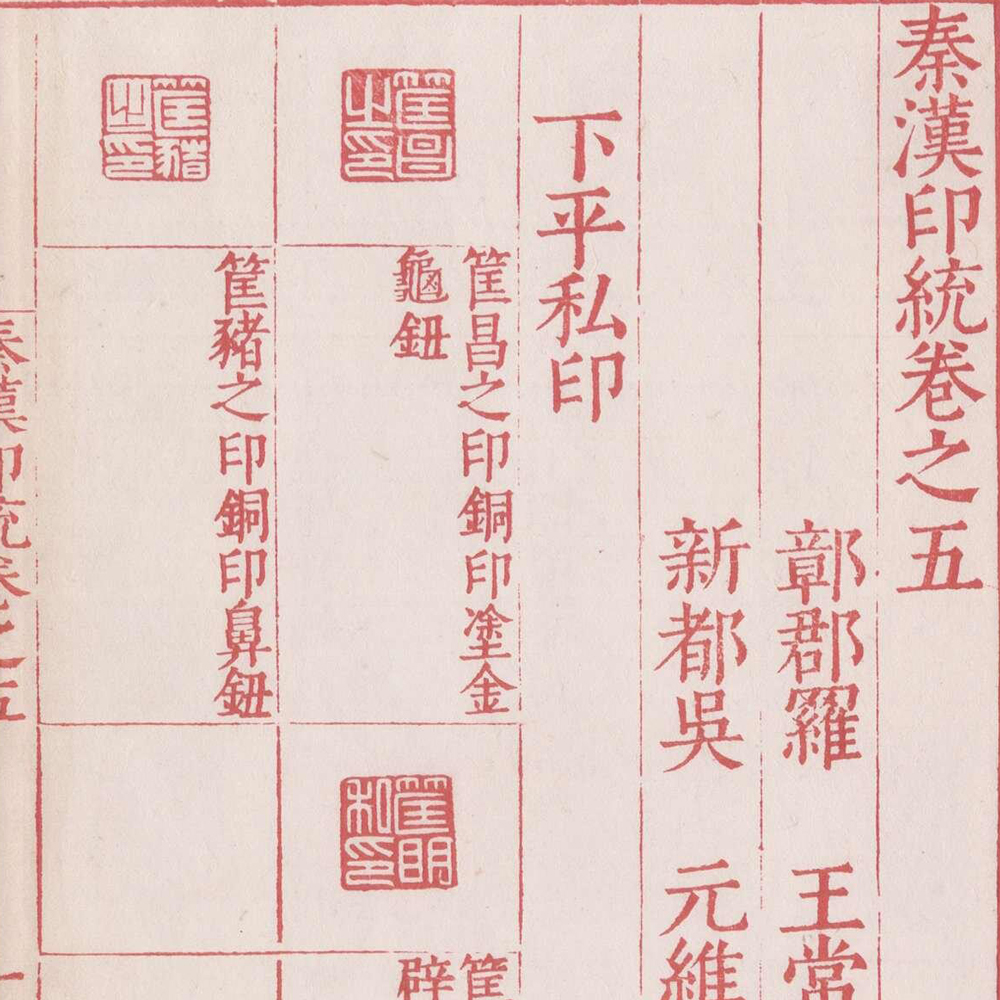 秦漢印統卷之五
鄣郡羅 王常
新都吳 元維
下平私印
筐昌之印
筐昌之印銅印塗金
龜鈕
筐明私印
筐
辟
筐豬之印
筐豬之印銅印鼻鈕
秦漢印統卷之五
一